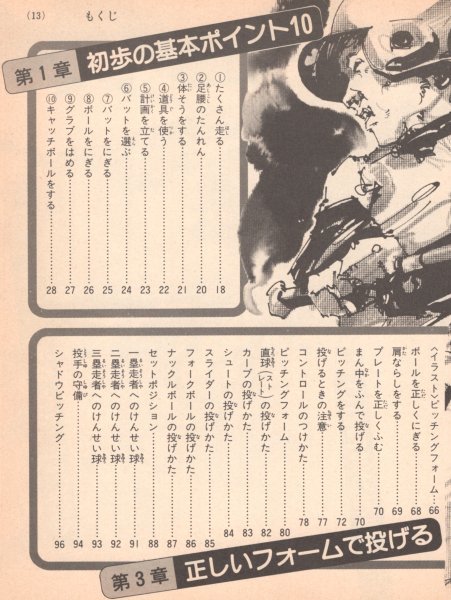 (13)　もくじ
第1章　初歩の基本ポイント10
①たくさん走る……18
②足腰のたんれん……20
③体そうをする……21
④道具を使う……22
⑤計画を立てる……23
⑥バットを選ぶ……24
⑦バットをにぎる……25
⑧ボールをにぎる……26
⑨グラブをはめる……27
⑩キャッチボールをする……28
〈イラスト〉ピッチングフォーム……66
ボールを正しくにぎる……68
肩ならしをする……69
プレートを正しくふむ……70
まん中をふんで投げる……70
ピッチングをする……72
投げるときの注意……77
コントロールのつけかた……78
ピッチングフォーム……80
直球(ストレート)の投げかた……82
カーブの投げかた……83
シュートの投げかた……84
スライダーの投げかた……85
フォークボールの投げかた……86
ナックルボールの投げかた……87
セットポジション……88
一塁走者へのけんせい球……91
二塁走者へのけんせい球……92
三塁走者へのけんせい球……93
投手の守備……94
シャドウピッチング……96
第3章　正しいフォームで投げる